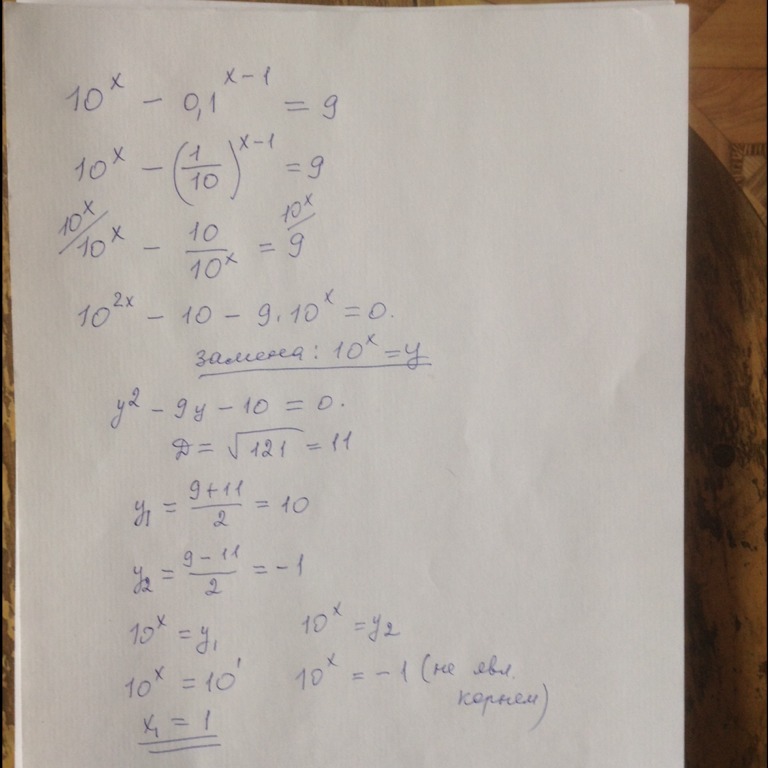 10^x − 0,1^(x−1) = 9
10^x − (1/10)^(x−1) = 9
10^x/ 10^x − 10/10^x = 10^x/ 9
10^(2x) − 10 − 9·10^x = 0.
замена: 10^x = y
y² − 9y − 10 = 0.
D = √121 = 11
y₁ = (9+11)/2 = 10
y₂ = (9−11)/2 = −1
10^x = y₁ 10^x = y₂
10^x = 10¹ 10^x = −1 (не явл.
корнем)
x₁ = 1